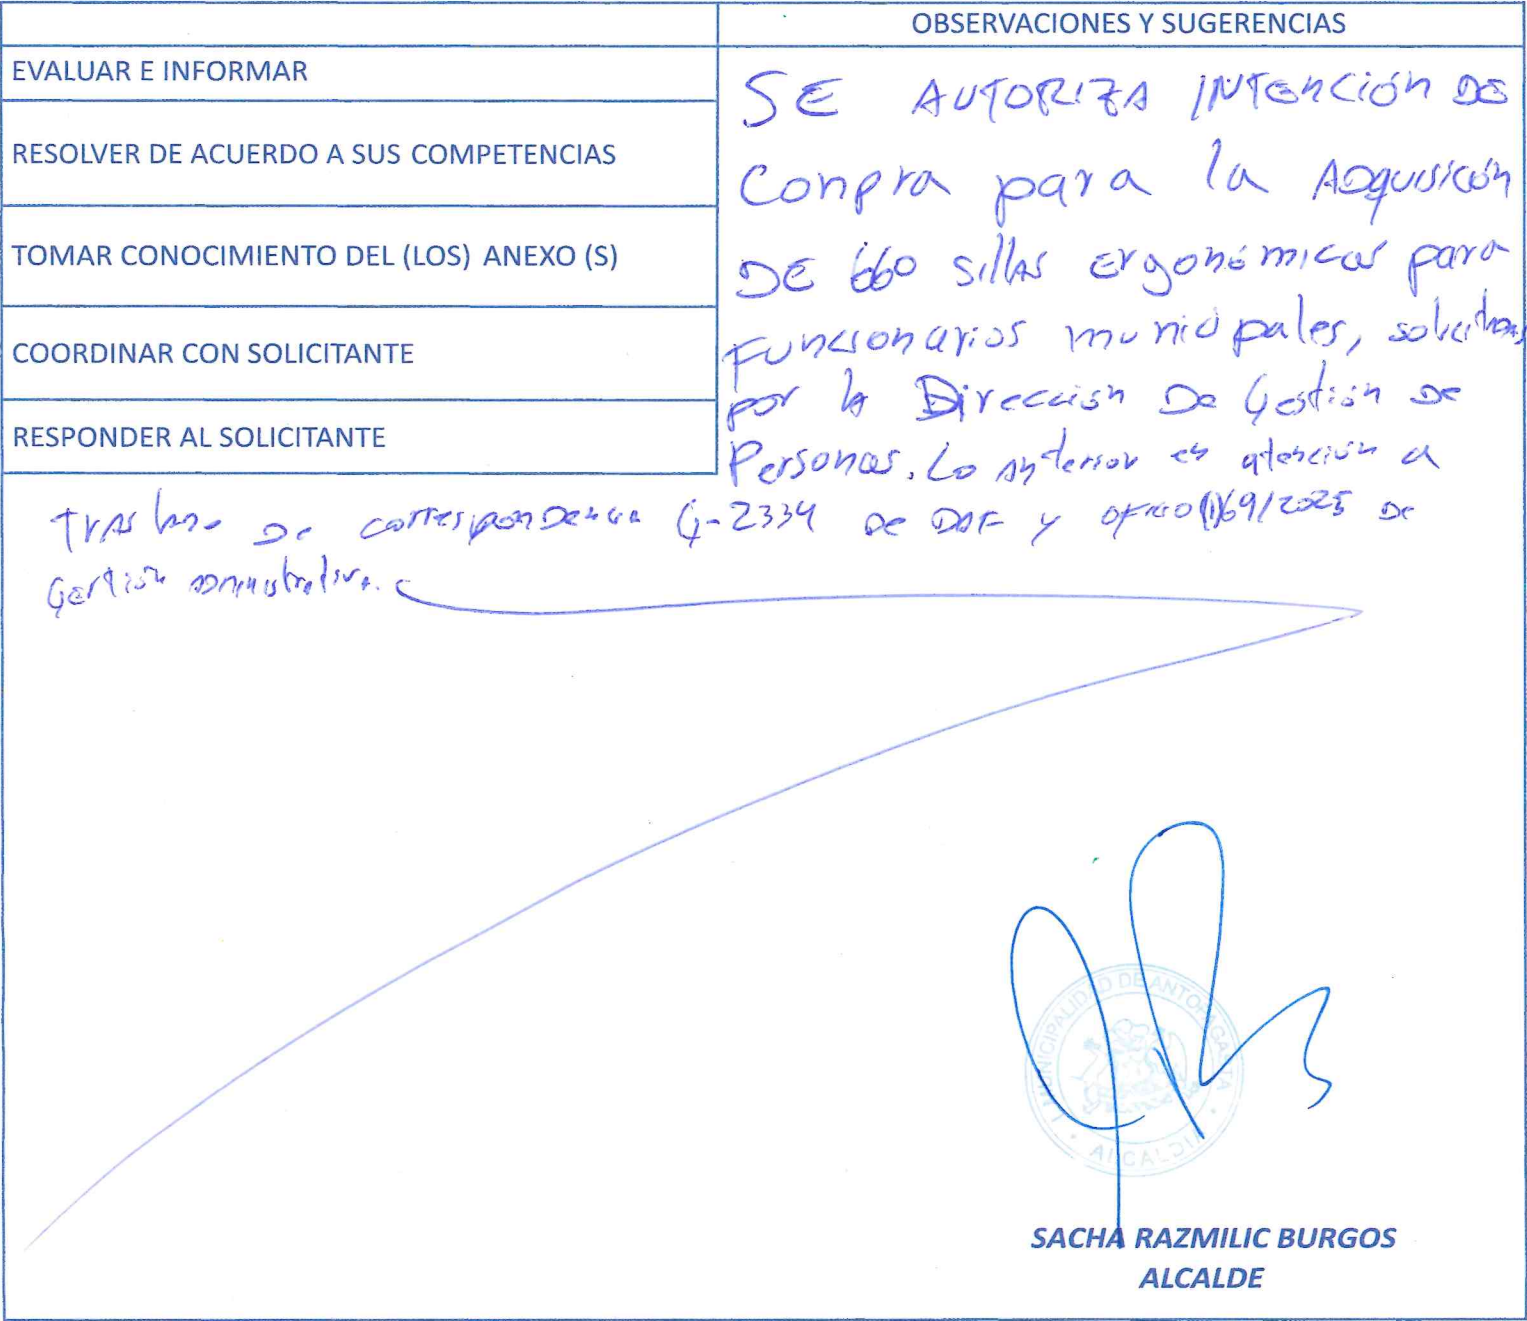 OBSERVACIONES Y SUGERENCIAS
EVALUAR E INFORMAR
RESOLVER DE ACUERDO A SUS COMPETENCIAS
TOMAR CONOCIMIENTO DEL (LOS) ANEXO (S)
COORDINAR CON SOLICITANTE
RESPONDER AL SOLICITANTE
SE AUTORIZA INTENCIÓN DE
Compra para la ADquisición
DE 660 sillas ergonómicas para
Funcionarios municipales,
por la Dirección De Gestión De
Personas. Lo anterior en atención a
de correspondencia G-2334 De DAF y OFICIO (I)69/2025 De
Gestión administrativa.
I. MUNICIPALIDAD DE ANTOFAGASTA
ALCALDIA
SACHA RAZMILIC BURGOS
ALCALDE